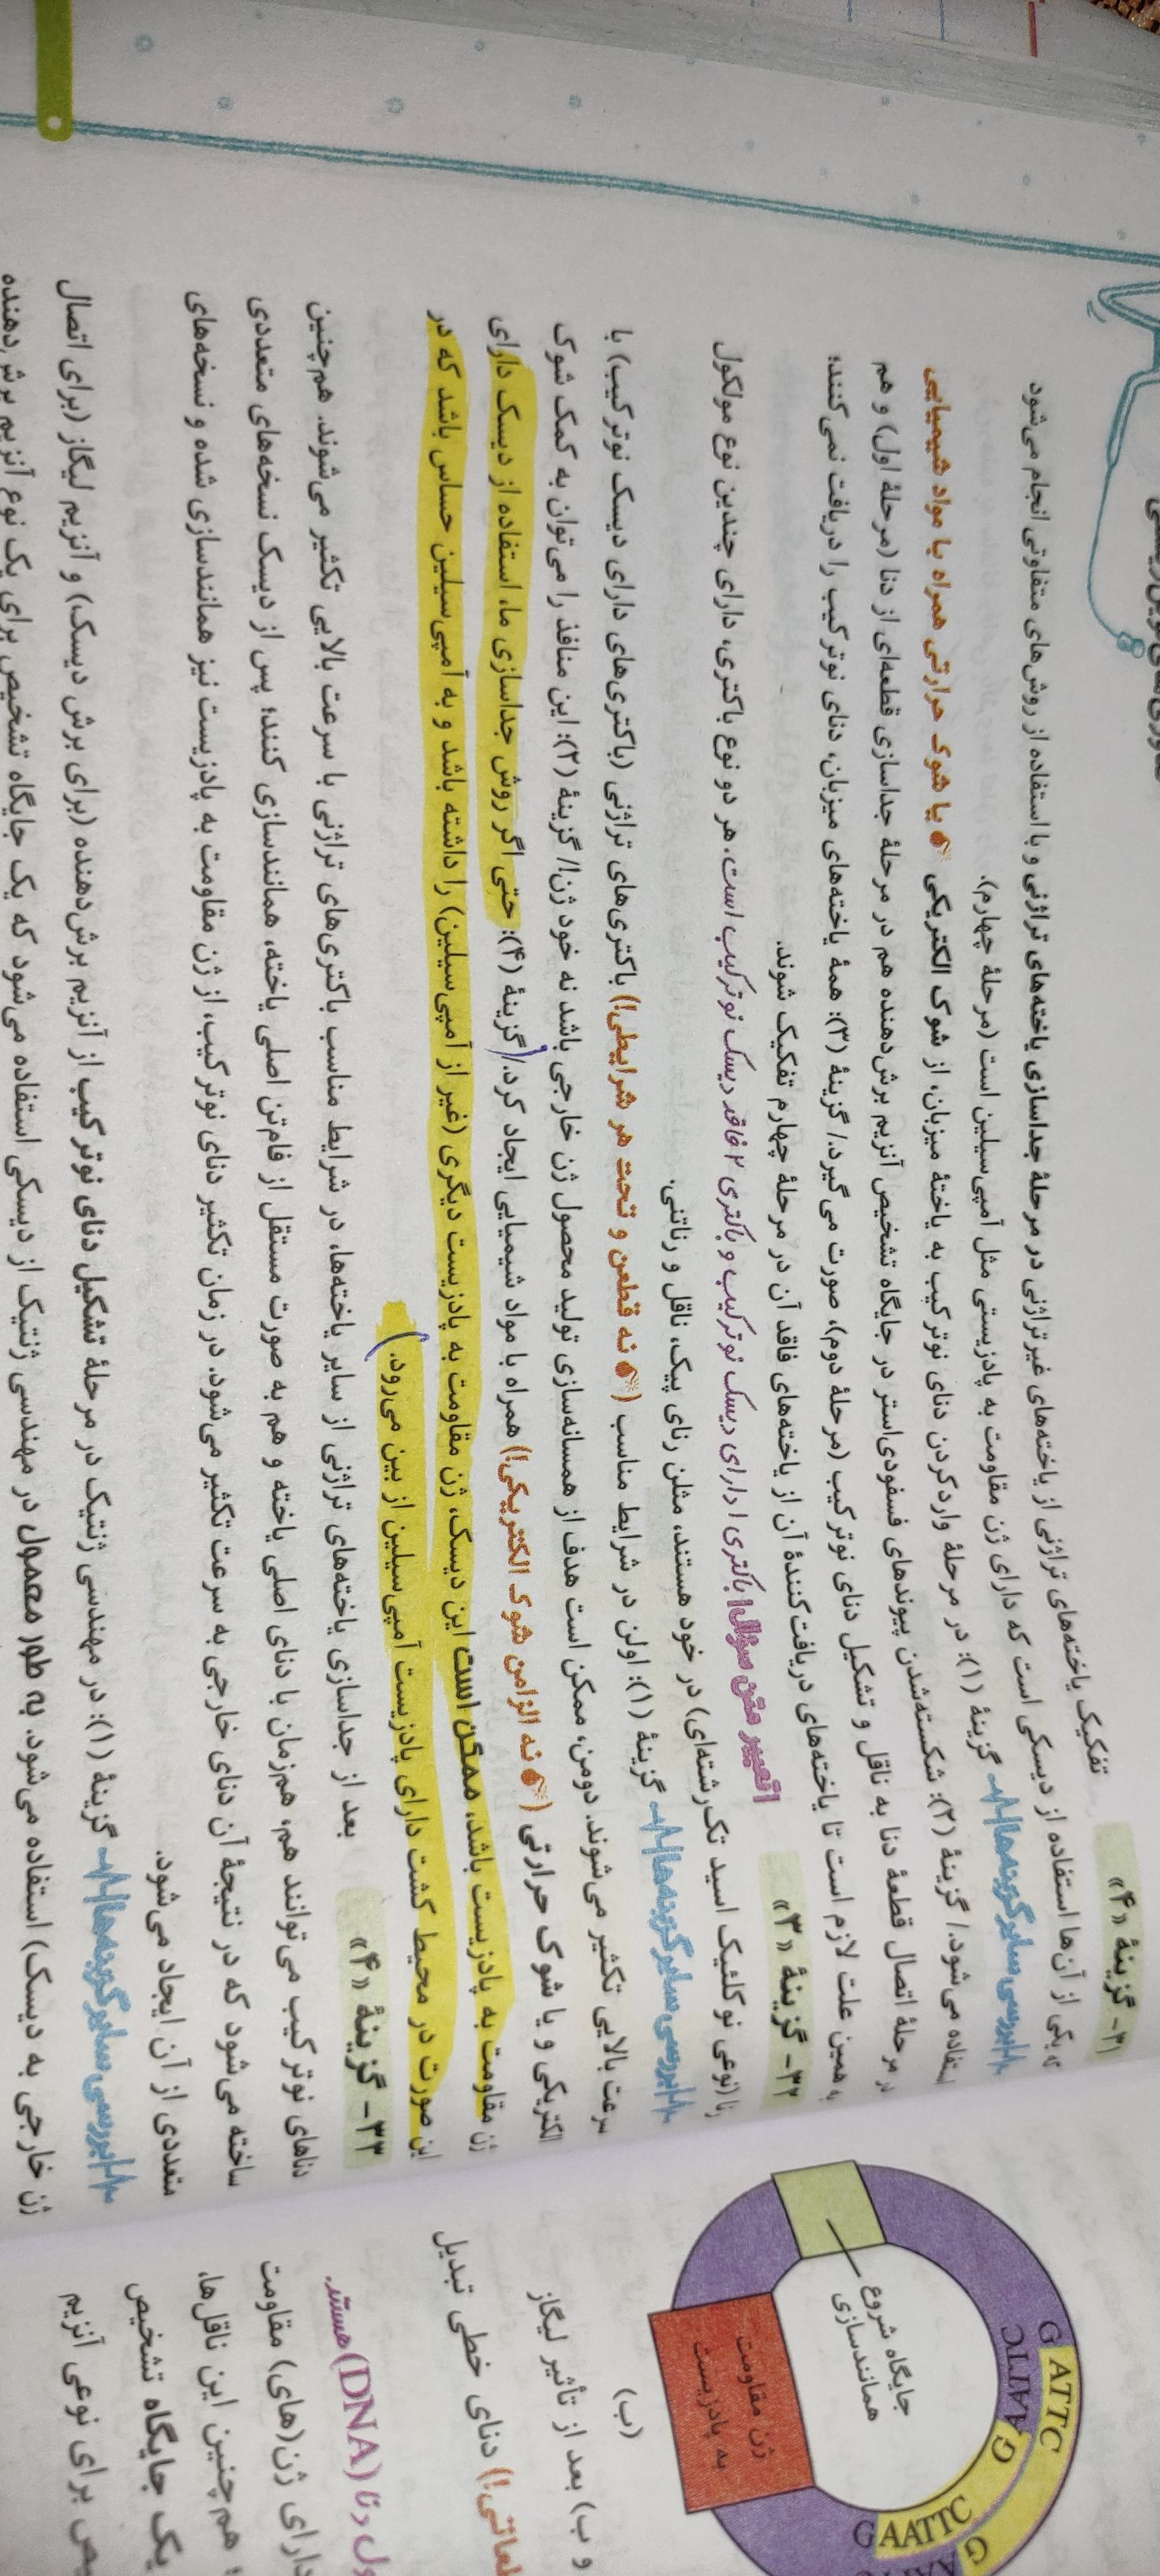 ۳۱- گزینهٔ «۴»
تفکیک یاخته‌های تراژنی از یاخته‌های غیرتراژنی در مرحلهٔ جداسازی یاخته‌های تراژنی و با استفاده از روش‌های متفاوتی انجام می‌شود
یکی از آن‌ها استفاده از دیسکی است که دارای ژن مقاومت به پادزیستی مثل آمپی‌سیلین است (مرحلهٔ چهارم).
بررسی سایر گزینه‌ها گزینهٔ (۱): در مرحلهٔ واردکردن دنای نوترکیب به یاختهٔ میزبان، از شوک الکتریکی یا شوک حرارتی همراه با مواد شیمیایی
استفاده می‌شود./ گزینهٔ (۲): شکسته‌شدن پیوندهای فسفودی‌استر در جایگاه تشخیص آنزیم برش‌دهنده هم در مرحلهٔ جداسازی قطعه‌ای از دنا (مرحلهٔ اول) و هم
در مرحلهٔ اتصال قطعهٔ دنا به ناقل و تشکیل دنای نوترکیب (مرحلهٔ دوم)، صورت می‌گیرد./ گزینهٔ (۳): همهٔ یاخته‌های میزبان، دنای نوترکیب را دریافت نمی‌کنند؛
به همین علت لازم است تا یاخته‌های دریافت‌کنندهٔ آن از یاخته‌های فاقد آن در مرحلهٔ چهارم تفکیک شوند.
۳۲- گزینهٔ «۳»
تعبیر متن سؤال باکتری ۱ دارای دیسک نوترکیب و باکتری ۲ فاقد دیسک نوترکیب است. هر دو نوع باکتری، دارای چندین نوع مولکول
رنا (نوعی نوکلئیک اسید تک‌رشته‌ای) در خود هستند، مثلن رنای پیک، ناقل و رناتنی.
بررسی سایر گزینه‌ها گزینهٔ (۱): اولن در شرایط مناسب (نه قطعن و تحت هر شرایطی!) باکتری‌های تراژنی (باکتری‌های دارای دیسک نوترکیب) با
سرعت بالایی تکثیر می‌شوند. دومن، ممکن است هدف از همسانه‌سازی تولید محصول ژن خارجی باشد نه خود ژن!/ گزینهٔ (۲): این منافذ را می‌توان به کمک شوک
الکتریکی و یا شوک حرارتی (نه الزامن شوک الکتریکی!) همراه با مواد شیمیایی ایجاد کرد./ گزینهٔ (۴): حتی اگر روش جداسازی ما، استفاده از دیسک دارای
ژن مقاومت به پادزیست باشد، ممکن است این دیسک، ژن مقاومت به پادزیست دیگری (غیر از آمپی‌سیلین) را داشته باشد و به آمپی‌سیلین حساس باشد که در
این صورت در محیط کشت دارای پادزیست آمپی‌سیلین از بین می‌رود.
۳۳- گزینهٔ «۴»
بعد از جداسازی یاخته‌های تراژنی از سایر یاخته‌ها، در شرایط مناسب باکتری‌های تراژنی با سرعت بالایی تکثیر می‌شوند. هم‌چنین
دناهای نوترکیب می‌توانند هم، هم‌زمان با دنای اصلی یاخته و هم به صورت مستقل از فام‌تن اصلی یاخته، همانندسازی کنند؛ پس از دیسک نسخه‌های متعددی
ساخته می‌شود که در نتیجهٔ آن دنای خارجی به سرعت تکثیر می‌شود. در زمان تکثیر دنای نوترکیب، از ژن مقاومت به پادزیست نیز همانندسازی شده و نسخه‌های
متعددی از آن ایجاد می‌شود.
بررسی سایر گزینه‌ها گزینهٔ (۱): در مهندسی ژنتیک در مرحلهٔ تشکیل دنای نوترکیب از آنزیم برش‌دهنده (برای برش دیسک) و آنزیم لیگاز (برای اتصال
ژن خارجی به دیسک) استفاده می‌شود. به طور معمول در مهندسی ژنتیک از دیسکی استفاده می‌شود که یک جایگاه تشخیص برای یک نوع آنزیم برش‌دهنده
G AATTC
G
GAATTC
G
جایگاه شروع
همانندسازی
ژن مقاومت
به پادزیست
(ب)
و ب) بعد از تأثیر لیگاز
دنای خطی تبدیل
دنا (DNA) هستند.
دارای ژن(های) مقاومت
هم‌چنین این ناقل‌ها،
یک جایگاه تشخیص
برای نوعی آنزیم